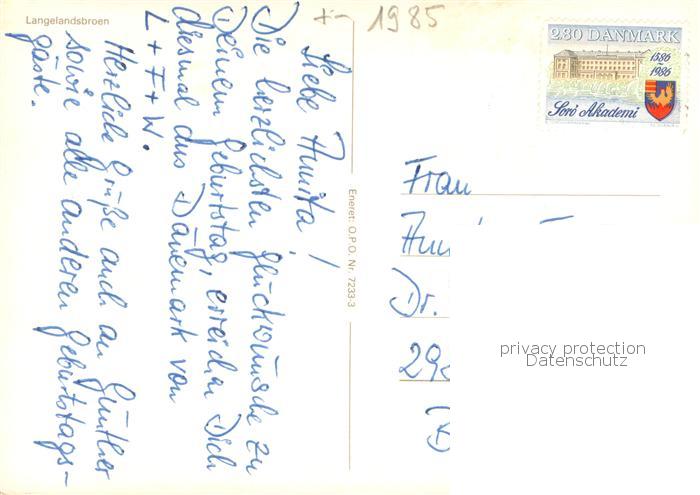 Langelandsbroen
1985
Liebe Annita!
Die herzlichsten Glückwünsche zu
Deinem Geburtstag, erreichen Dich
diesmal aus Dänemark von
L + F + W.
Herzliche Grüße auch an Günther
sowie alle anderen Geburtstags-
gäste.
Eneret: O.P.O. Nr. 7233-3
2.80 DANMARK
1586
1986
Sorø Akademi
Frau
Dr.
privacy protection
Datenschutz